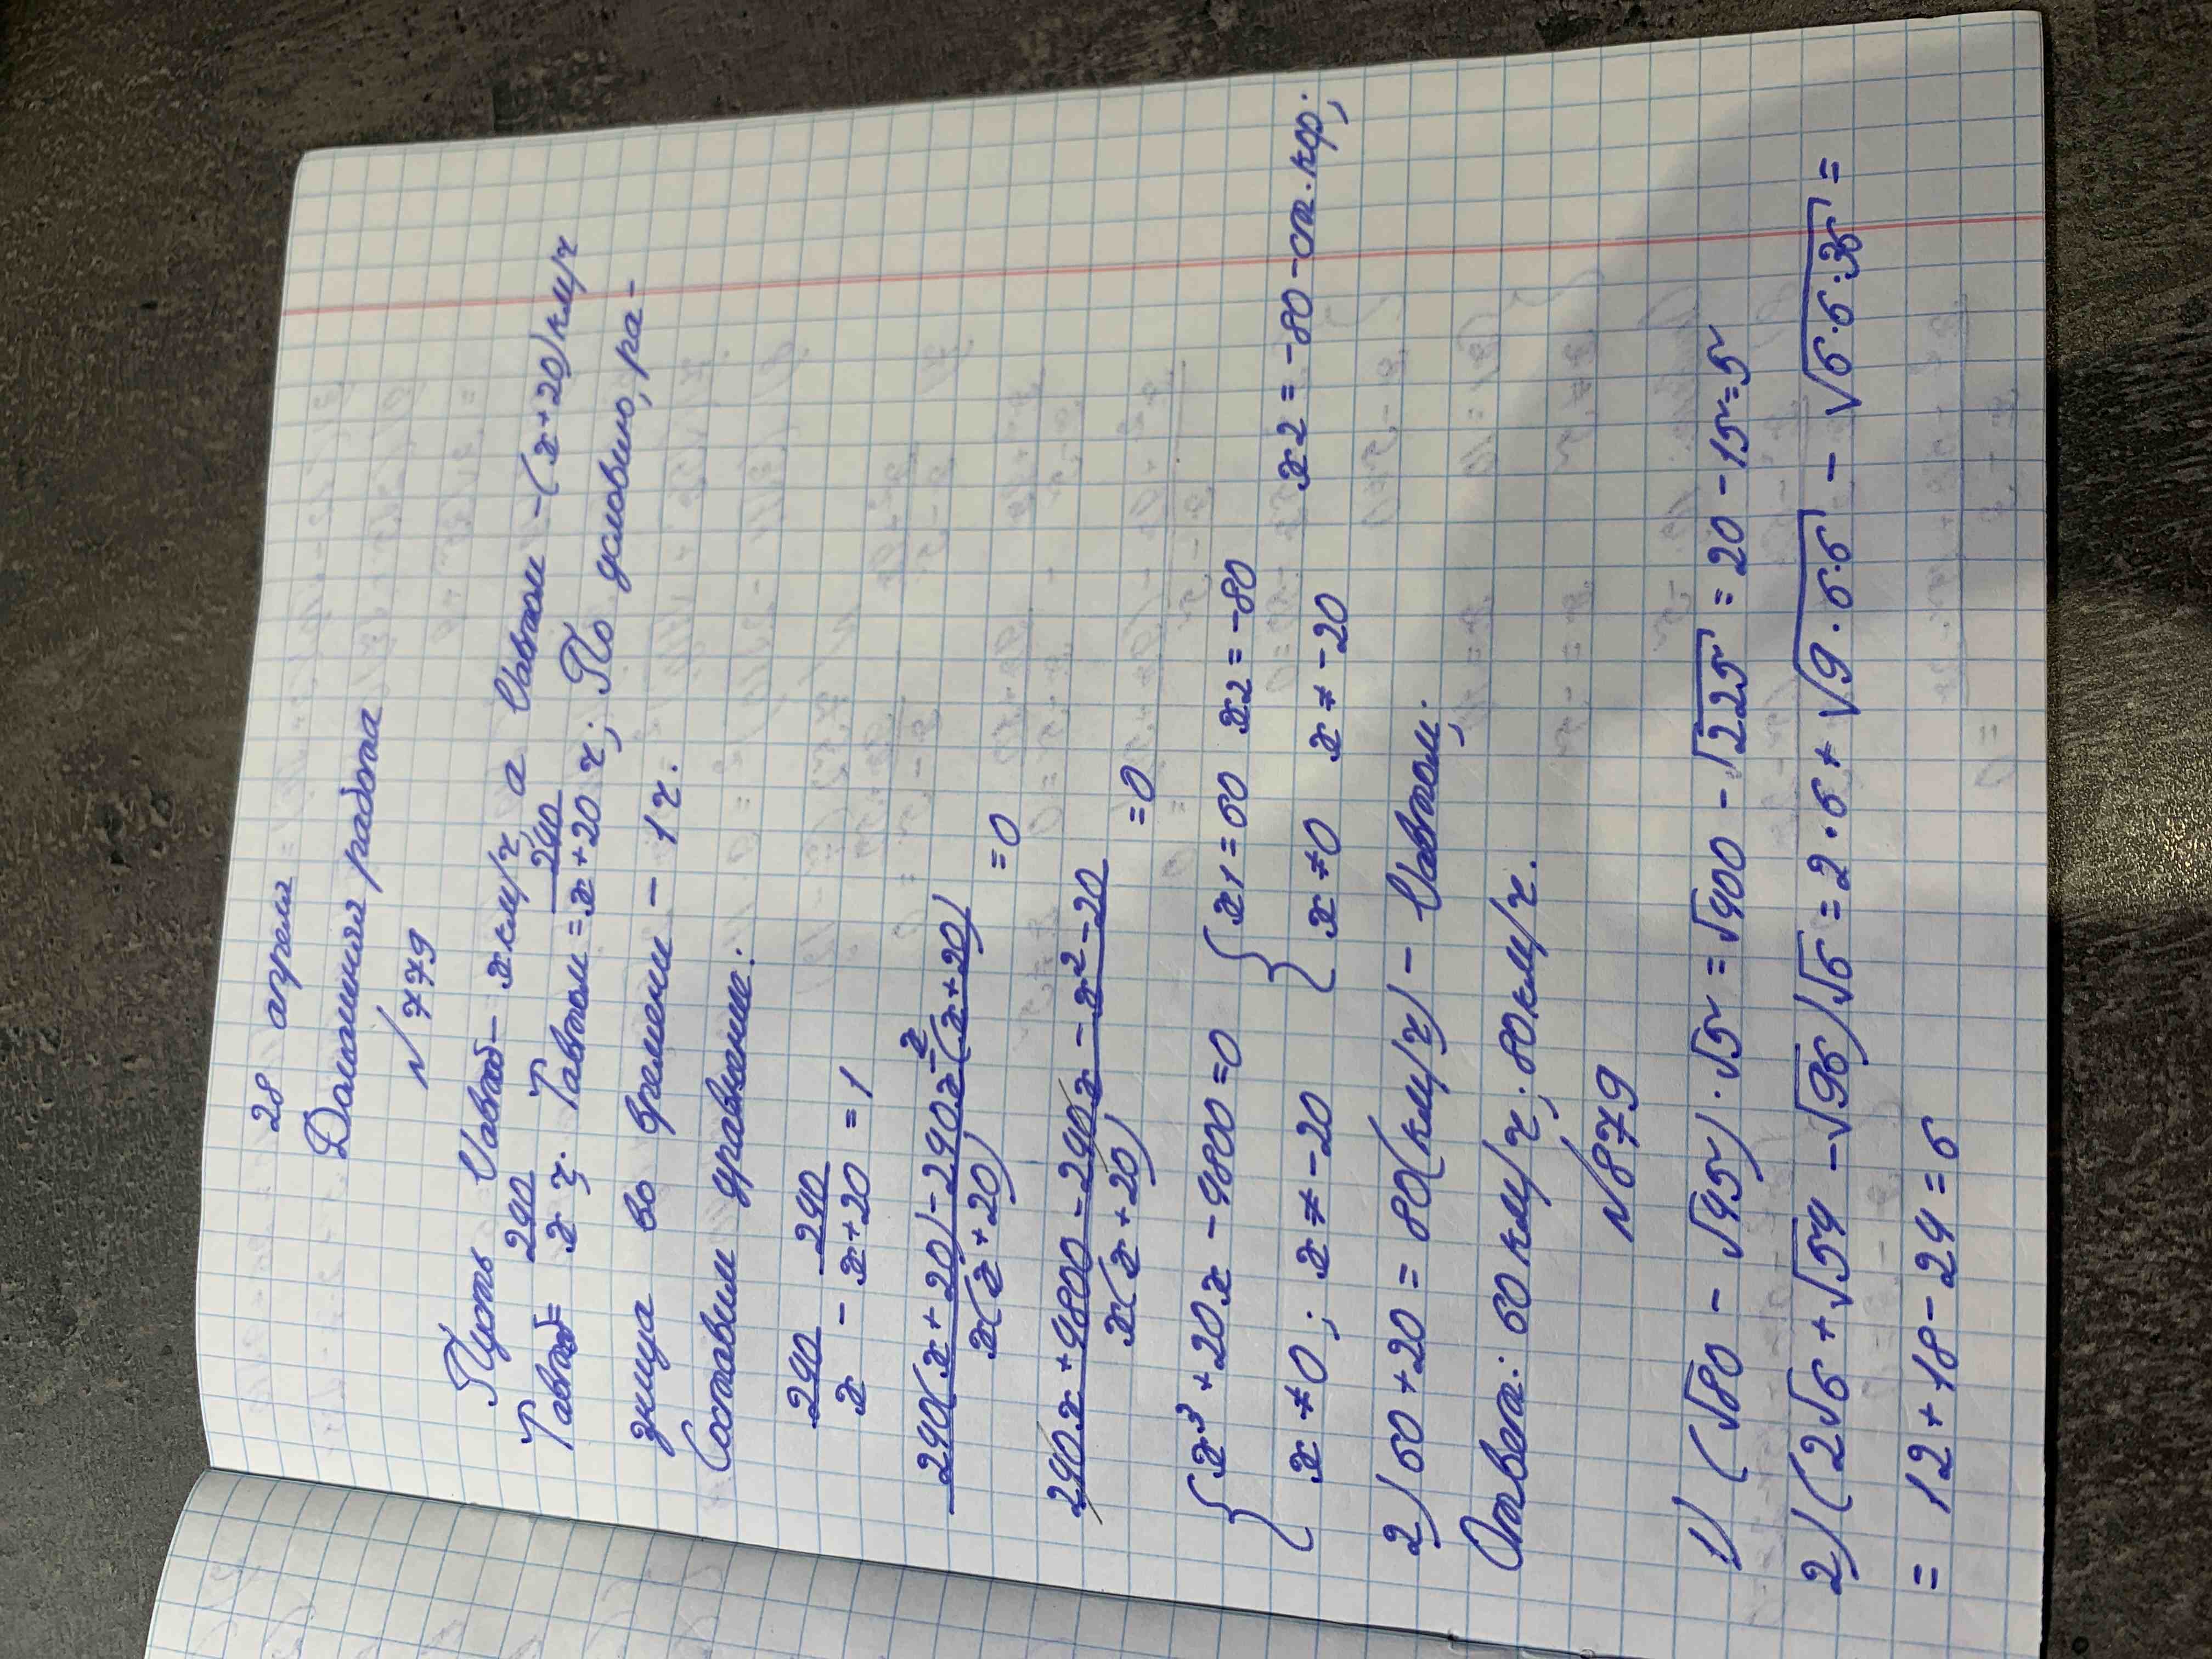 28 апреля
Домашняя работа
№ 779
Пусть Vавтоб – x км/ч, а Vавтом – (x+20) км/ч
Tавтоб = 240/x ч. Tавтом = 240/x+20 ч; По условию, ра-
зница во времени – 1 ч.
Составим уравнение:
240/x - 240/x+20 = 1
240(x+20) - 240x - x(x+20)/x(x+20) = 0
240x + 4800 - 240x - x² - 20/x(x+20) = 0
{x³ + 20x - 4800 = 0 {x1 = 60 x2 = -80
x ≠ 0; x ≠ -20 x ≠ 0 x ≠ -20 x2 = -80 - ст. кор.;
2) 60 + 20 = 80 (км/ч) - Vавтом;
Ответ: 60 км/ч; 80 км/ч.
№ 879
1) (√80 - √45) · √5 = √400 - √225 = 20 - 15 = 5
2) (2√6 + √54 - √96)√6 = 2 · 6 + √9·6·6 - √6·6·36 =
= 12 + 18 - 24 = 6